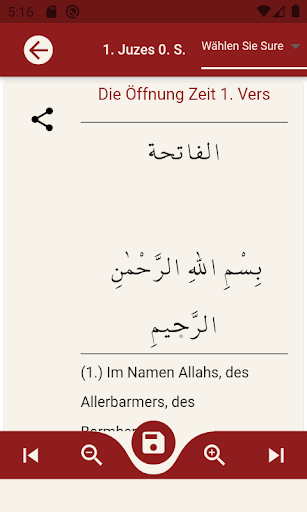 5:16
1. Juzes 0. S.
Wählen Sie Sure
Die Öffnung Zeit 1. Vers
الفاتحة
بِسْمِ اللهِ الرَّحْمٰنِ
الرَّجِيمِ
(1.) Im Namen Allahs, des
Allerbarmers, des